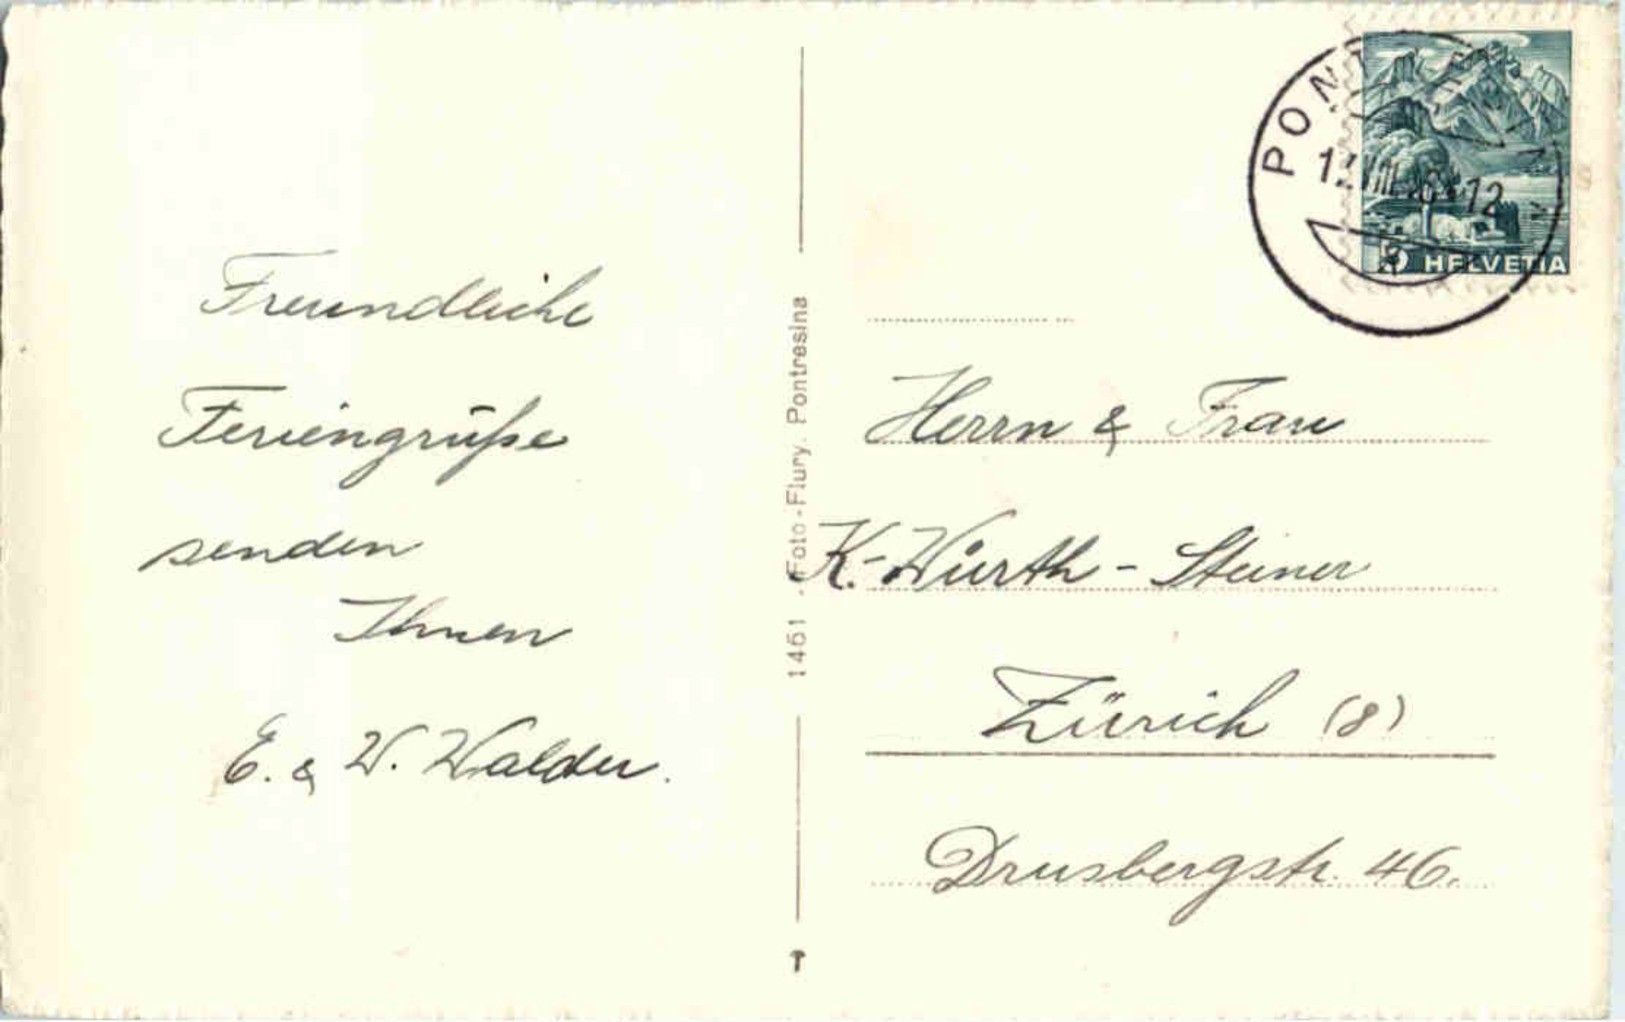 Freundliche
Feriengrüße
senden
Ihnen
E. & W. Walder.
1461 - Foto-Flury, Pontresina
5 HELVETIA
Herrn & Frau
K. Würth - Steiner
Zürich (8)
Drusbergstr. 46.